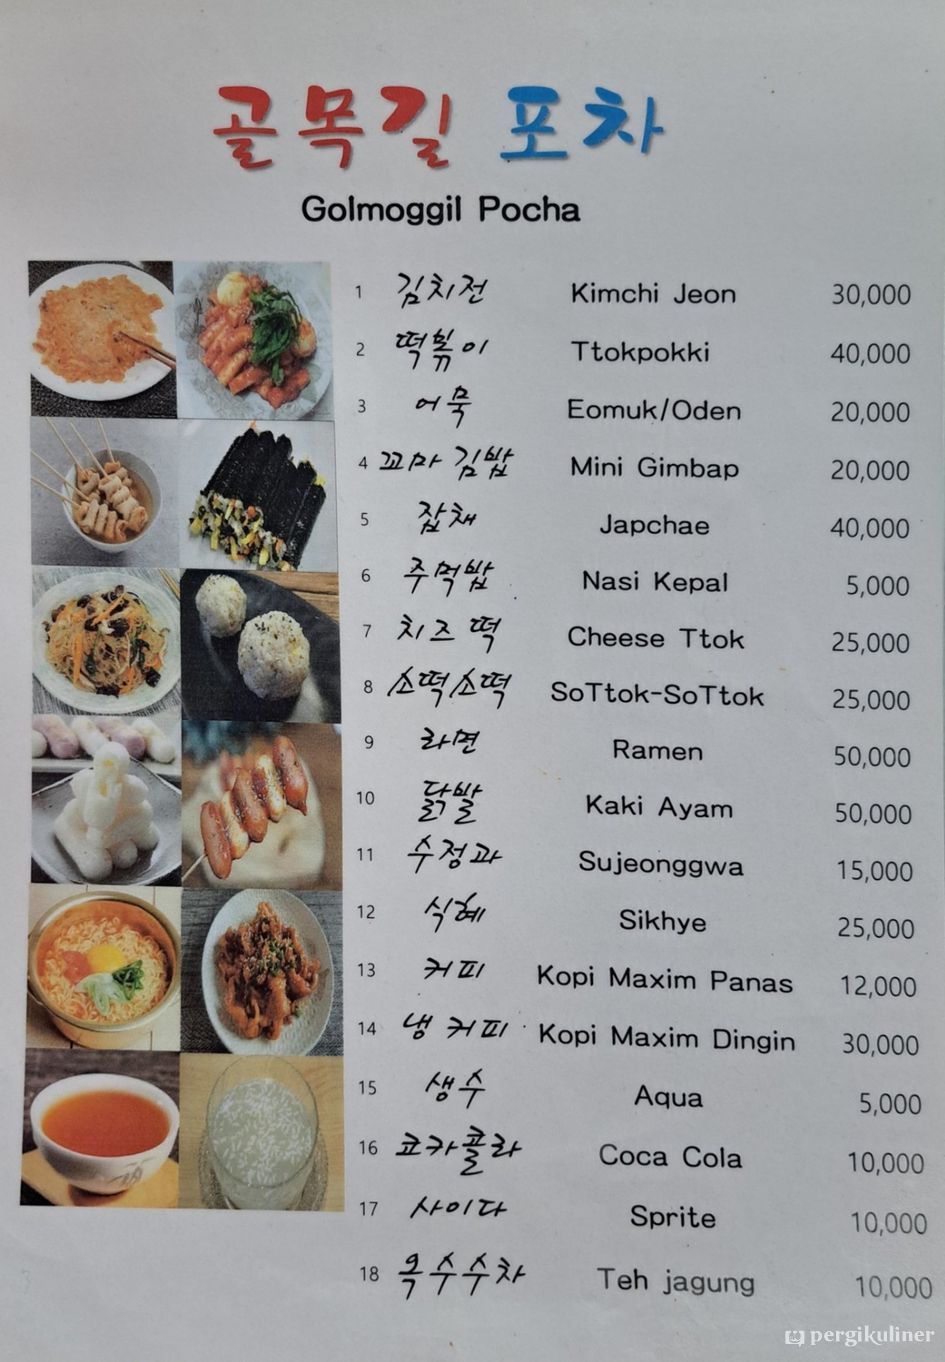 골목길 포차
Golmoggil Pocha
1 김치전 Kimchi Jeon 30,000
2 떡볶이 Ttokpokki 40,000
3 어묵 Eomuk/Oden 20,000
4 꼬마 김밥 Mini Gimbap 20,000
5 잡채 Japchae 40,000
6 주먹밥 Nasi Kepal 5,000
7 치즈 떡 Cheese Ttok 25,000
8 소떡소떡 SoTtok-SoTtok 25,000
9 라면 Ramen 50,000
10 닭발 Kaki Ayam 50,000
11 수정과 Sujeonggwa 15,000
12 식혜 Sikhye 25,000
13 커피 Kopi Maxim Panas 12,000
14 냉 커피 Kopi Maxim Dingin 30,000
15 생수 Aqua 5,000
16 코카콜라 Coca Cola 10,000
17 사이다 Sprite 10,000
18 옥수수차 Teh jagung 10,000
pergikuliner